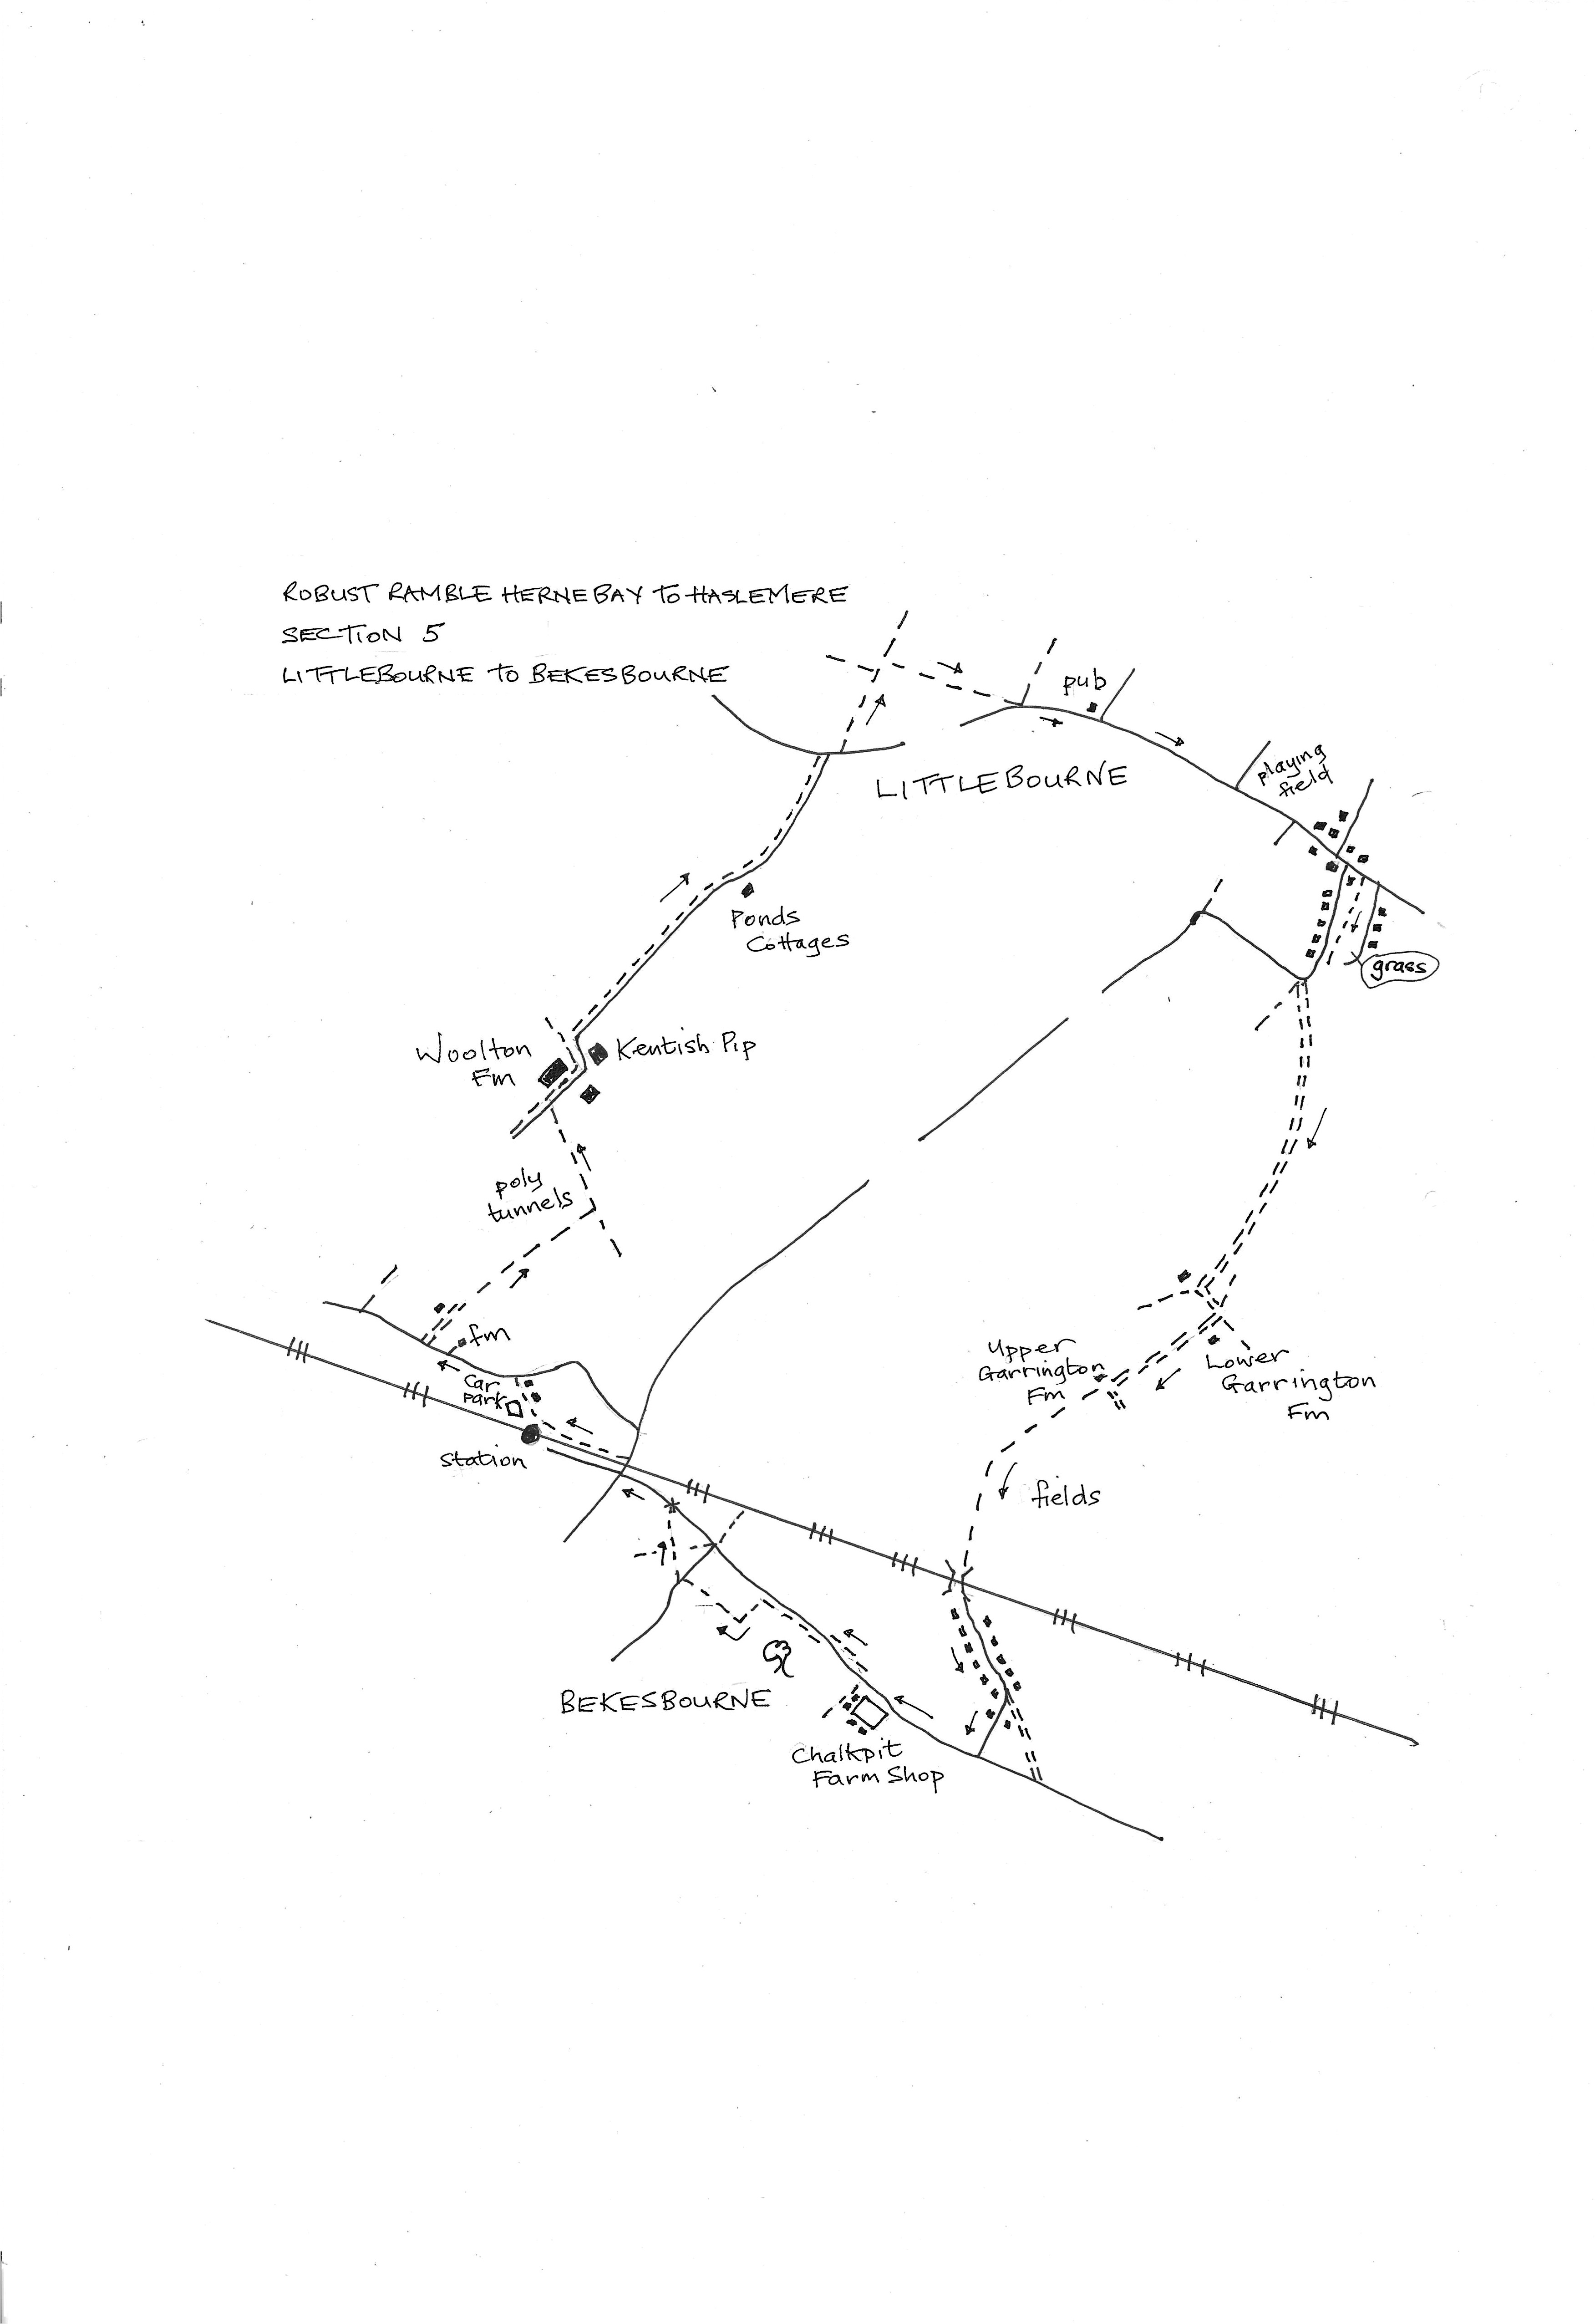 ROBUST RAMBLE HERNE BAY TO HASLEMERE
SECTION 5
LITTLEBOURNE TO BEKESBOURNE
pub
playing
field
LITTLEBOURNE
Ponds
Cottages
grass
Woolton
Fm
Kentish Pip
poly
tunnels
fm
Car
Park
Station
Upper
Garrington
Fm
Lower
Garrington
Fm
fields
BEKESBOURNE
Chalkpit
Farm Shop